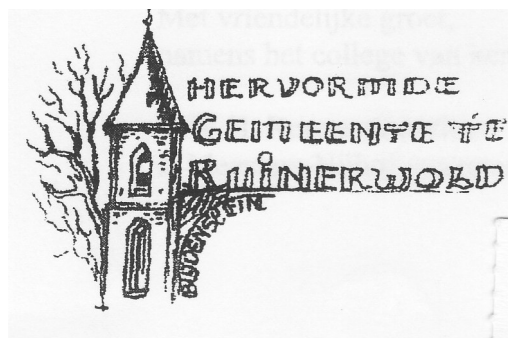 Met vriendelijke groet,
namens het college van
HERVORMDE
GEMEENTE TE
RUINERWOLD